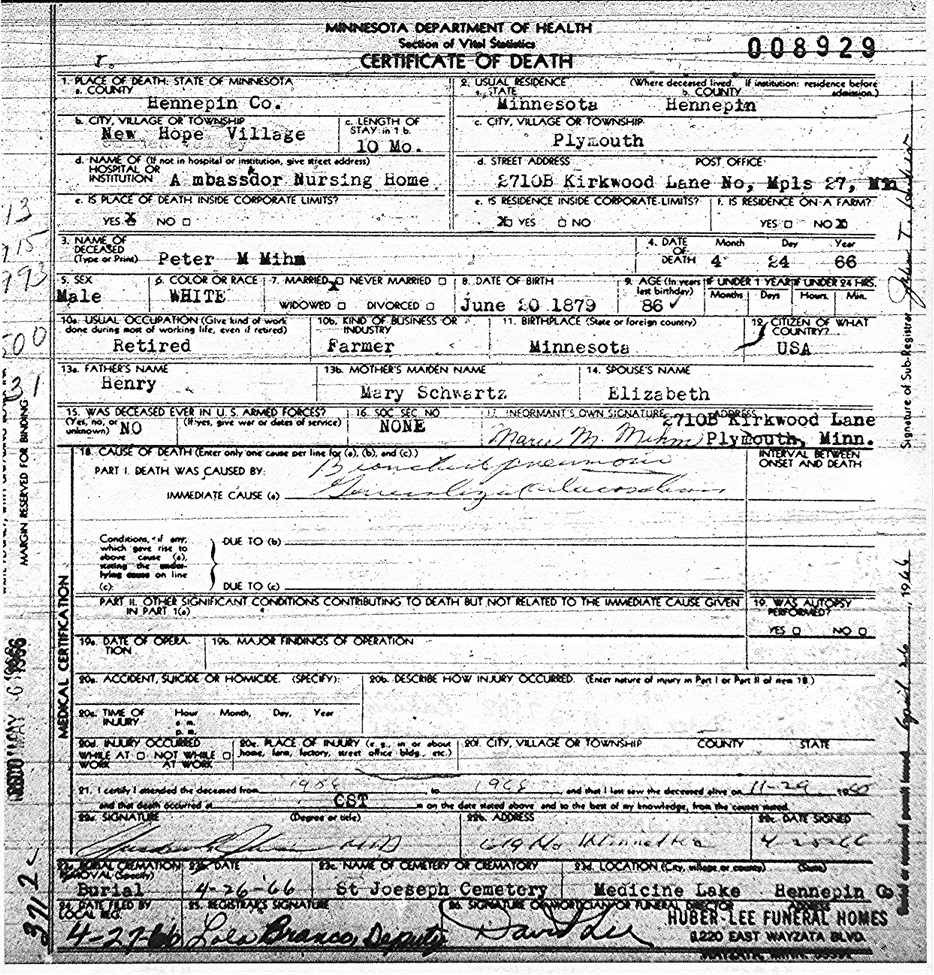 MINNESOTA DEPARTMENT OF HEALTH
Section of Vital Statistics
CERTIFICATE OF DEATH
008929
1. PLACE OF DEATH: STATE OF MINNESOTA
a. COUNTY
Hennepin Co.
2. USUAL RESIDENCE (Where deceased lived. If institution: residence before admission.)
a. STATE b. COUNTY
Minnesota Hennepin
b. CITY, VILLAGE OR TOWNSHIP
New Hope Village
c. LENGTH OF STAY in 1 b.
10 Mo.
c. CITY, VILLAGE OR TOWNSHIP
Plymouth
d. NAME OF (If not in hospital or institution, give street address)
HOSPITAL OR
INSTITUTION A mbassdor Nursing Home
d. STREET ADDRESS POST OFFICE
2710B Kirkwood Lane No, Mpls 27, Mn
e. IS PLACE OF DEATH INSIDE CORPORATE LIMITS?
YES X NO
e. IS RESIDENCE INSIDE CORPORATE LIMITS?
X YES NO
f. IS RESIDENCE ON A FARM?
YES NO X
3. NAME OF DECEASED
(Type or Print) Peter M Mihm
4. DATE OF DEATH Month Day Year
4 24 66
5. SEX
Male
6. COLOR OR RACE
WHITE
7. MARRIED X NEVER MARRIED
WIDOWED DIVORCED
8. DATE OF BIRTH
June 20 1879
9. AGE (In years last birthday)
86
IF UNDER 1 YEAR
Months Days
IF UNDER 24 HRS.
Hours Min.
10a. USUAL OCCUPATION (Give kind of work done during most of working life, even if retired)
Retired
10b. KIND OF BUSINESS OR INDUSTRY
Farmer
11. BIRTHPLACE (State or foreign country)
Minnesota
12. CITIZEN OF WHAT COUNTRY?
USA
13a. FATHER'S NAME
Henry
13b. MOTHER'S MAIDEN NAME
Mary Schwartz
14. SPOUSE'S NAME
Elizabeth
15. WAS DECEASED EVER IN U.S. ARMED FORCES?
(Yes, no, or unknown) NO (If yes, give war or dates of service)
16. SOC SEC. NO
NONE
17. INFORMANT'S OWN SIGNATURE ADDRESS
2710B Kirkwood Lane
Marie M. Mihm Plymouth, Minn.
18. CAUSE OF DEATH (Enter only one cause per line for (a), (b), and (c).)
INTERVAL BETWEEN ONSET AND DEATH
PART I. DEATH WAS CAUSED BY:
IMMEDIATE CAUSE (a)
Conditions, if any, which gave rise to above cause (a), stating the underlying cause on line (c)
DUE TO (b)
DUE TO (c)
PART II. OTHER SIGNIFICANT CONDITIONS CONTRIBUTING TO DEATH BUT NOT RELATED TO THE IMMEDIATE CAUSE GIVEN IN PART 1(a)
19. WAS AUTOPSY PERFORMED?
YES NO
19a. DATE OF OPERATION
19b. MAJOR FINDINGS OF OPERATION
20a. ACCIDENT, SUICIDE OR HOMICIDE. (SPECIFY):
20b. DESCRIBE HOW INJURY OCCURRED. (Enter nature of injury in Part I or Part II of item 18.)
20c. TIME OF INJURY Hour Month, Day, Year
a. m.
p. m.
20d. INJURY OCCURRED
WHILE AT WORK NOT WHILE AT WORK
20e. PLACE OF INJURY (e. g., in or about home, farm, factory, street office bldg., etc.)
20f. CITY, VILLAGE OR TOWNSHIP COUNTY STATE
21. I certify I attended the deceased from to and that I last saw the deceased alive on 11-29
and that death occurred at CST m on the date stated above and to the best of my knowledge, from the causes stated.
22a. SIGNATURE (Degree or title)
22b. ADDRESS
22c. DATE SIGNED
23a. BURIAL CREMATION REMOVAL (Specify)
Burial
23b. DATE
4-26-66
23c. NAME OF CEMETERY OR CREMATORY
St Joeseph Cemetery
23d. LOCATION (City, village or county) (State)
Medicine Lake Hennepin Co
24. DATE FILED BY LOCAL REG.
4-27-66
25. REGISTRAR'S SIGNATURE
Lola Branco, Deputy
26. SIGNATURE OF MORTICIAN/OR FUNERAL DIRECTOR ADDRESS
David Lee
HUBER-LEE FUNERAL HOMES
1220 EAST WAYZATA BLVD.
MARGIN RESERVED FOR BINDING
MEDICAL CERTIFICATION
Signature of Sub-Registrar
April 26, 1966